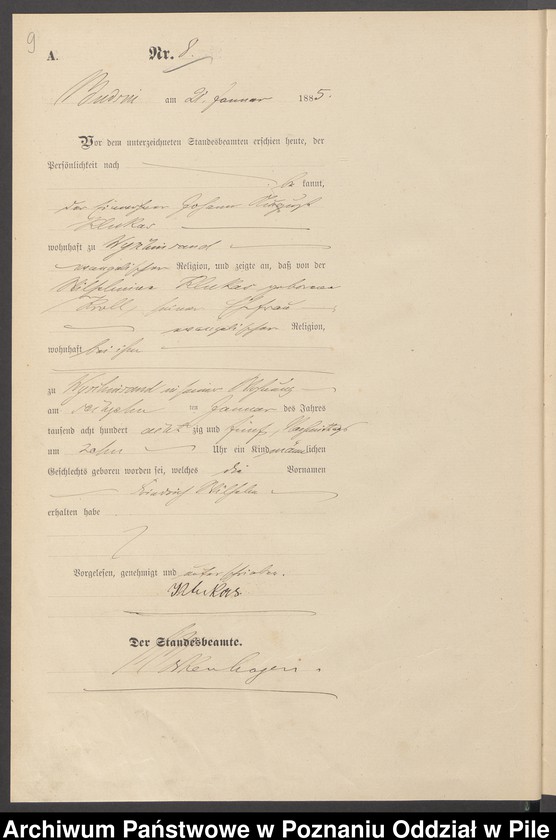 9
A.
Nr. 8.
am 21. Januar 1885.
Vor dem unterzeichneten Standesbeamten erschien heute, der
Persönlichkeit nach
be kannt,
der Johann August
Klukas
wohnhaft zu
evangelischer Religion, und zeigte an, daß von der
Wilhelmine Klukas geborene
Kroll, seiner Ehefrau
evangelischer Religion,
wohnhaft bei ihm
zu in seiner Wohnung
am ten Januar des Jahres
tausend acht hundert acht zig und fünf, Nachmittags
um zehn Uhr ein Kind männlichen
Geschlechts geboren worden sei, welches die Vornamen
Friedrich Wilhelm
erhalten habe
Vorgelesen, genehmigt und unterschrieben.
Klukas
Der Standesbeamte.
Archiwum Państwowe w Poznaniu Oddział w Pile